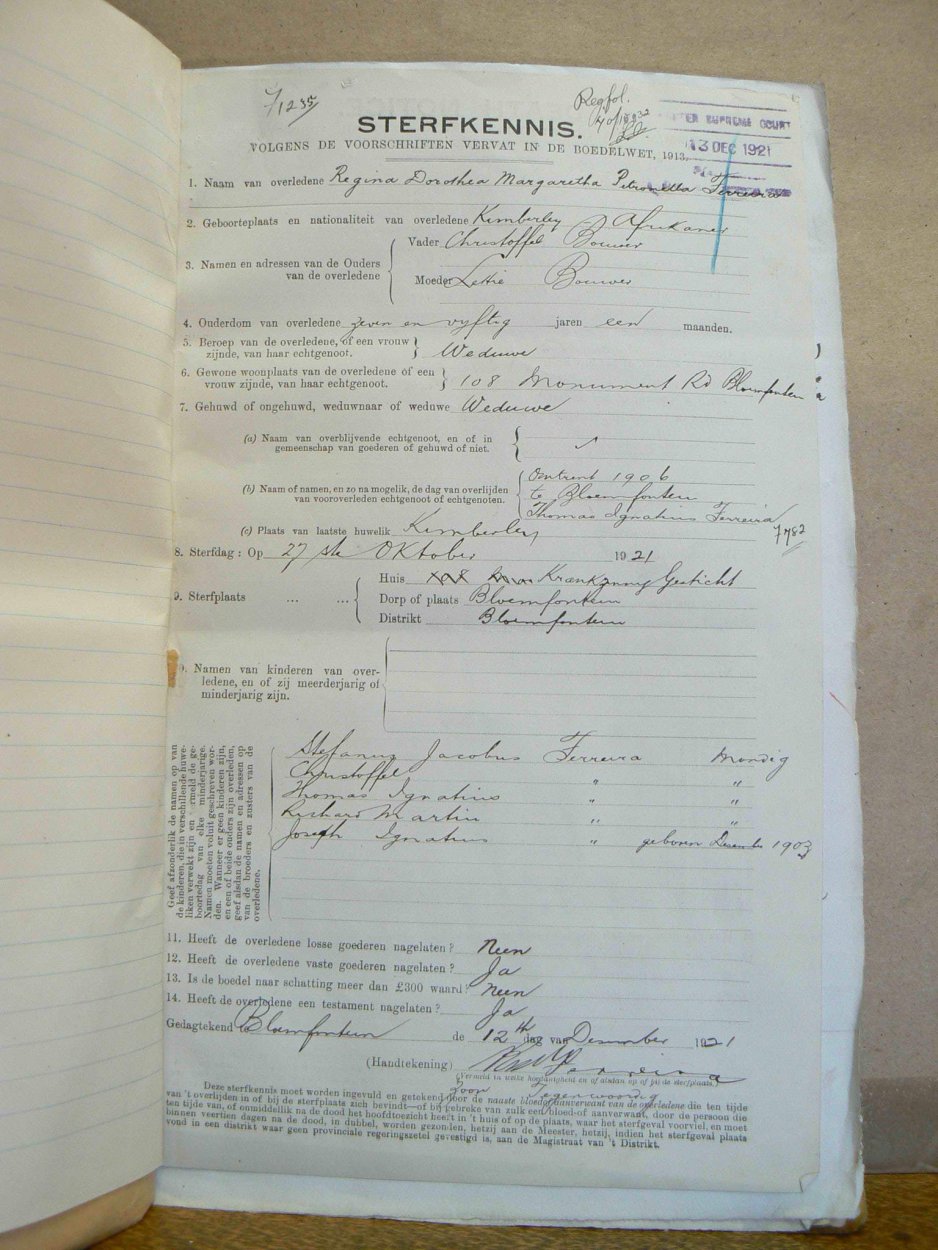 7/1235
Regfol.
STERFKENNIS.
SUPREME COURT
13 DEC 1921
VOLGENS DE VOORSCHRIFTEN VERVAT IN DE BOEDELWET, 1913.
1. Naam van overledene Regina Dorothea Margaretha Petronella Ferreira
2. Geboorteplaats en nationaliteit van overledene Kimberley Afrikaner
3. Namen en adressen van de Ouders van de overledene
Vader Christoffel Bouwer
Moeder Lettie Bouwer
4. Ouderdom van overledene zeven en vyftig jaren een maanden.
5. Beroep van de overledene, of een vrouw
zijnde, van haar echtgenoot. } Weduwe
6. Gewone woonplaats van de overledene of een
vrouw zijnde, van haar echtgenoot. } 108 Monument Rd Bloemfontein
7. Gehuwd of ongehuwd, weduwnaar of weduwe Weduwe
(a) Naam van overblijvende echtgenoot, en of in
gemeenschap van goederen of gehuwd of niet.
(b) Naam of namen, en zo na mogelik, de dag van overlijden
van vooroverleden echtgenoot of echtgenoten.
Omtrent 1906
te Bloemfontein
Thomas Ignatius Ferreira
7782
(c) Plaats van laatste huwelik Kimberley
8. Sterfdag : Op 27 ste Oktober 1921
9. Sterfplaats ... ...
Huis Krankzinnig Gesticht
Dorp of plaats Bloemfontein
Distrikt Bloemfontein
Namen van kinderen van over-
ledene, en of zij meerderjarig of
minderjarig zijn.
Geef afzonderlik de namen op van
de kinderen, die in verschillende huwe-
liken verwekt zijn en vermeld de ge-
boortedag van elke minderjarige.
Namen moeten voluit geschreven wor-
den. Wanneer er geen kinderen zijn,
en een of beide ouders zijn overleden,
geef alsdan de namen en adressen op
van de broeders en zusters van de
overledene.
Stefanus Jacobus Ferreira Mondig
Christoffel " "
Thomas Ignatius " "
Richard Martin " "
Joseph Ignatius " geboren Desember 1903
11. Heeft de overledene losse goederen nagelaten? Neen
12. Heeft de overledene vaste goederen nagelaten? Ja
13. Is de boedel naar schatting meer dan £300 waard? Neen
14. Heeft de overledene een testament nagelaten? Ja
Gedagtekend te Bloemfontein de 12th dag van Desember 1921
(Handtekening) Ferreira
(Vermeld in welke hoedanigheid en of alsdan op of bij de sterfplaats.)
Zoon Tegenwoordig
Deze sterfkennis moet worden ingevuld en getekend door de naaste bloed- of aanverwant van de overledene die ten tijde
van 't overlijden in of bij de sterfplaats zich bevindt—of bij gebreke van zulk een bloed-of aanverwant, door de persoon die
ten tijde van, of onmiddellik na de dood het hoofdtoezicht heeft in 't huis of op de plaats, waar het sterfgeval voorviel, en moet
binnen veertien dagen na de dood, in dubbel, worden gezonden, hetzij aan de Meester, hetzij, indien het sterfgeval plaats
vond in een distrikt waar geen provinciale regeringszetel gevestigd is, aan de Magistraat van 't Distrikt.